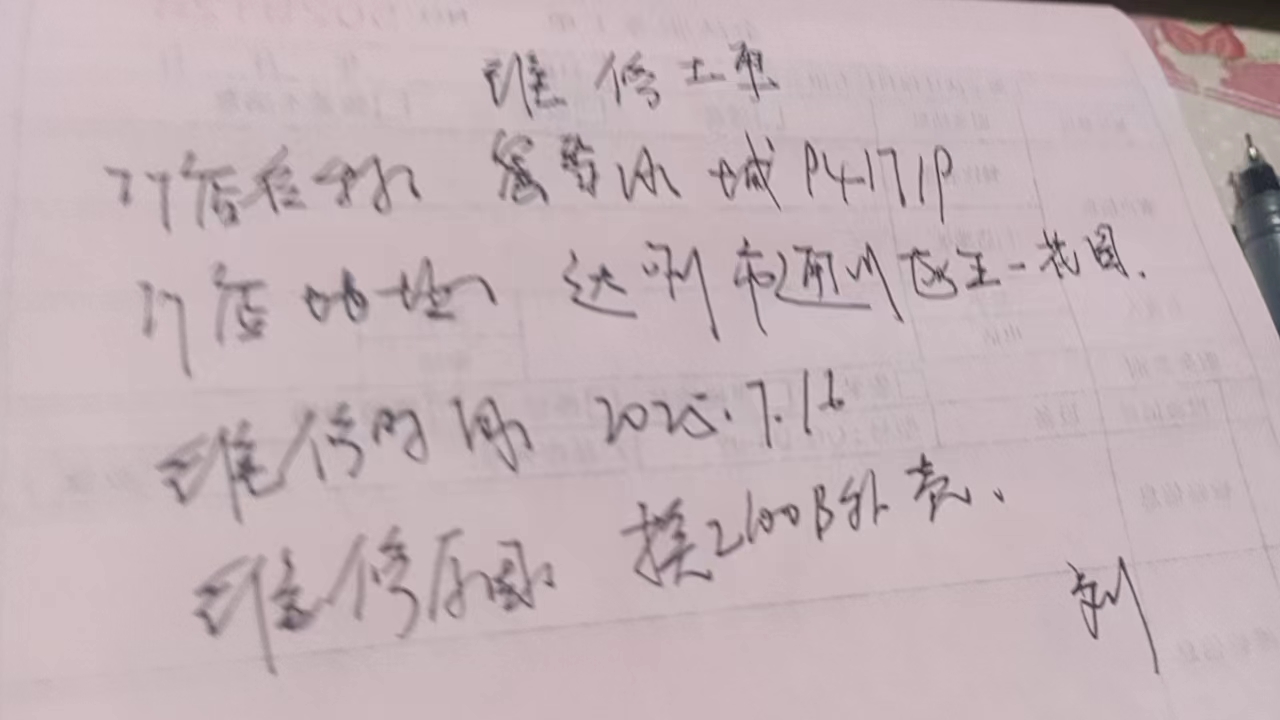 维修工单
门店名称 蜜雪冰城P4171P
门店地址 达州市通川区正一花园.
维修时间 2025.7.16
维修原因 换2100B外壳、
刘